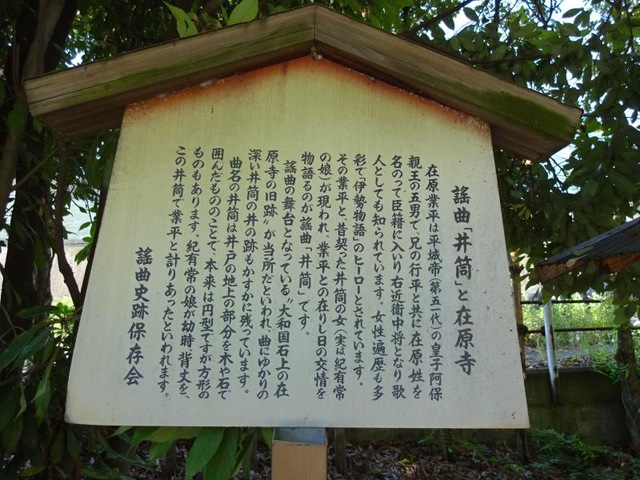 謡曲「井筒」と在原寺
在原業平は平城帝(第五一代)の皇子阿保
親王の五男で、兄の行平と共に在原姓を
名のって臣籍に入り右近衛中将となり歌
人としても知られています。女性遍歴も多
彩で「伊勢物語」のヒーローとされています。
その業平と、昔契った井筒の女(実は紀有常
の娘)が現われ、業平との在りし日の交情を
物語るのが謡曲「井筒」です。
謡曲の舞台となっている〝大和国石上の在
原寺の旧跡〟が当所だといわれ、曲にゆかりの
深い井筒の井の跡もかすかに残っています。
曲名の井筒は井戸の地上の部分を木や石で
囲んだもののことで、本来は円型ですが方形の
ものもあります。紀有常の娘が幼時、背丈を、
この井筒で業平と計りあったといわれます。
謡曲史跡保存会